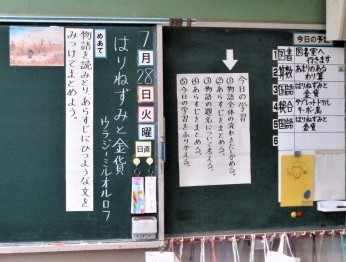 はりねずみと金貨
ウラジーミル オルロフ
めあて
物語を読みとり、あらすじにひつような文を
みつけてまとめよう。
7
月
28
日
火
曜
日直
今日の学習
①学習全体の流れをたしかめる。
②あらすじをまとめる。
⑤今日の学習をふりかえる。
今日の予定
1 図書 図書室へ
行きます
2 算数 あまりのある
わり算
3 国語 はりねずみと
金貨
4 総合
5 国語 はりねずみと
金貨
6